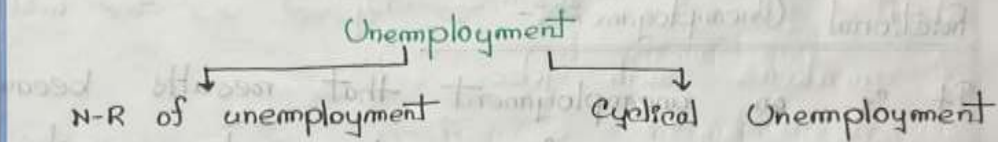 Unemployment
N-R of unemployment Cyclical Unemployment